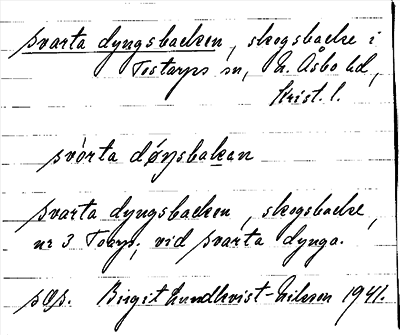 svarta dyngsbacken, skogsbacke i
Tostarps sn, N. Åsbo hd,
Krist. l.
svórta døŋsbakan
svarta dyngsbacken, skogsbacke,
nr 3 Torps, vid svarta dynga.
Birgit Lundkvist-Nilsson 1941.